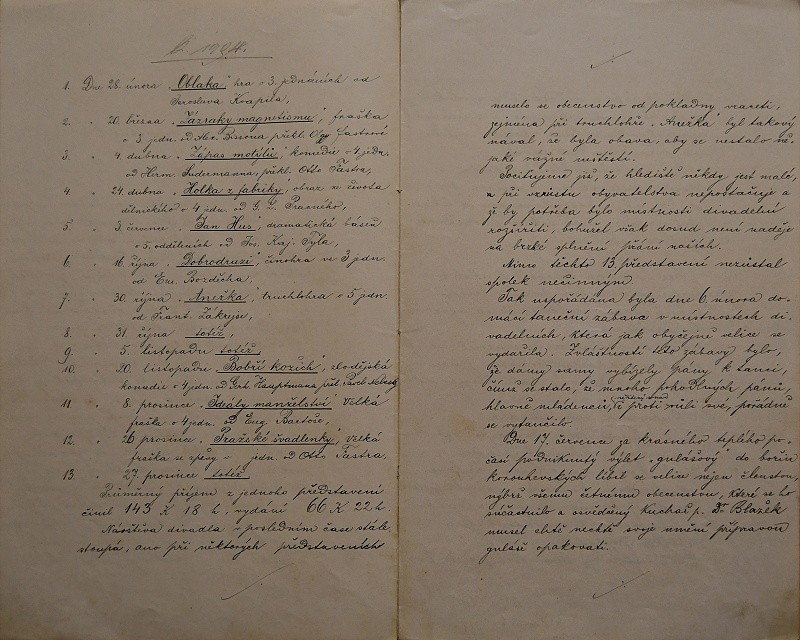 1. Dne 28. února „Oblaka" hra o 3. jednáních od
Jaroslava Kvapila,
2. " 20. března „Zázraky magnetismu", fraška
o 3. jedn. od Alex. Bissona překl. Olga Fastrová
3. " 4. dubna „Zápas motýlů", komedie o 4 jedn.
od Herm. Sudermanna, překl. Otto Fastra,
4. " 24. dubna „Holka z fabriky", obraz ze života
dělnického o 4 jedn. od
5. " 3. července „Jan Hus", dramatická báseň
o 5. odděleních od Jos. Kaj. Tyla,
6. " 16. října „Dobrodruzi", činohra ve 3 jedn.
od Em. Bozděcha,
7. " 30. října „Anežka", truchlohra o 5 jedn.
od Frant. Zákrejse,
8. " 31 října totéž,
9. " 5. listopadu totéž,
10. " 20. listopadu „Bobří kožich", zlodějská
komedie o 4 jedn. od Gerh. Hauptmana přel.
11. " 8. prosince „Ideály manželství" Velká
fraška o 4 jedn. od Eug.
12. " 26 prosince „Pražské švadlenky", Velká
fraška se zpěvy o jedn. od Otto Fastra,
13. " 27. prosince totéž
Průměrný příjem z jednoho představení
činil 143 K 18 h, vydání 66 K 22 h.
Návštěva divadla v posledním čase stále
stoupá, ano při některých představeních
muselo se obecenstvo od pokladny vraceti,
zejména při truchlohře „Anežka" byl takový
nával, že byla obava, aby se nestalo ně-
jaké vážné neštěstí.
Pociťujeme již, že hlediště někdy jest malé,
a při vzrůstu obyvatelstva nepostačuje a
že by potřeba bylo místnosti divadelní
rozšířiti, bohužel však dosud není naděje
na brzké splnění přání našich.
Mimo těchto 13. představení nezůstal
spolek nečinným.
Tak uspořádána byla dne 6. února do-
mácí taneční zábava v místnostech di-
vadelních, která jak obyčejně velice se
vydařila. Zvláštností této zábavy bylo,
že dámy samy vybízely pány k tanci,
čímž se stalo, že mnoho pohodlných pánů,
hlavně mládenců, i proti vůli své, pořádně
se vytančilo.
Dne 17. července za krásného teplého po-
časí podniknutý výlet „gulášový" do boru
korouhevských líbil se velice nejen členstvu,
nýbrž všemu četnému obecenstvu, které se ho
súčastnilo a osvědčený Kuchař p. Dr Blažek
musel chtě nechtě svoje umění přípravou
guláše opakovati.